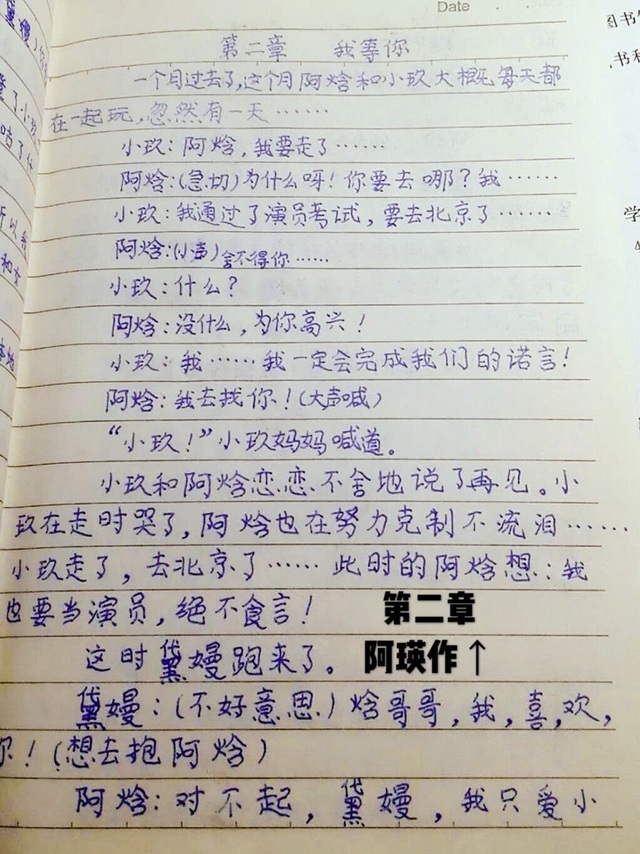 Date
第二章 我等你
一个月过去了,这个月阿焓和小玖大概每天都
在一起玩,忽然有一天……
小玖:阿焓,我要走了……
阿焓:(急切)为什么呀!你要去哪?我……
小玖:我通过了演员考试,要去北京了……
阿焓:(小声)舍不得你……
小玖:什么?
阿焓:没什么,为你高兴!
小玖:我……我一定会完成我们的诺言!
阿焓:我去找你!(大声喊)
“小玖!”小玖妈妈喊道。
小玖和阿焓恋恋不舍地说了再见。小
玖在走时哭了,阿焓也在努力克制不流泪……
小玖走了,去北京了……此时的阿焓想:我
也要当演员,绝不食言!
第二章
这时黛嫚跑来了。
阿瑛作↑
黛嫚:(不好意思)焓哥哥,我,喜,欢,
你!(想去抱阿焓)
阿焓:对不起,黛嫚,我只爱小
图书
书
学